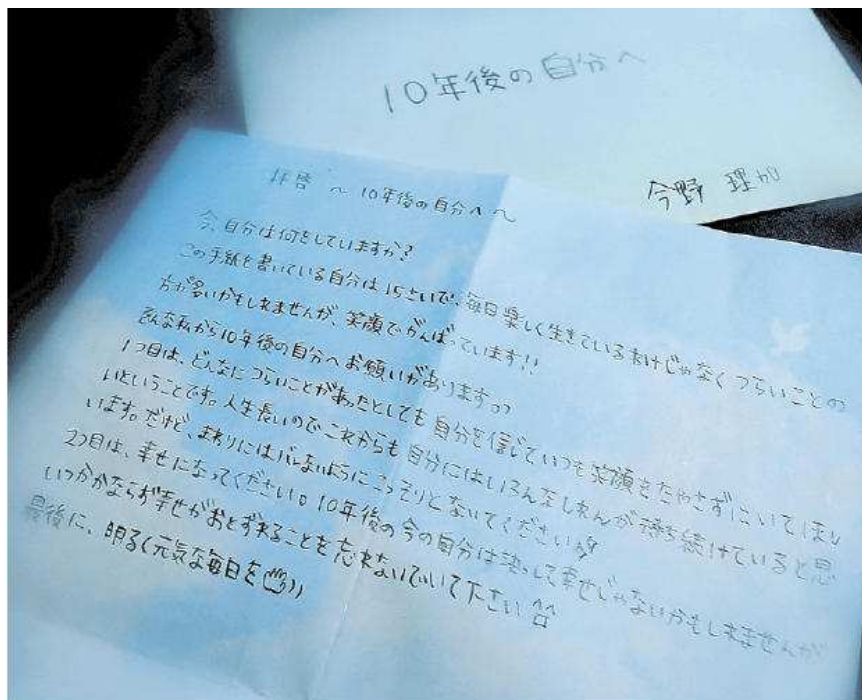 10年後の自分へ
今野 理加
拝啓 ~ 10年後の自分へ~
今、自分は何をしていますか?
この手紙を書いている自分は15さいで、毎日楽しく生きているわけじゃなくつらいことの
方が多いかもしれませんが、笑顔でがんばっています!!
そんな私から10年後の自分へお願いがあります。
1つ目は、どんなにつらいことがあったとしても自分を信じていつも笑顔をたやさずにいてほし
いということです。人生長いのでこれからも自分にはいろんなしれんが待ち続けていると思
います。だけど、まわりにはバレないようにこっそりとないてください
2つ目は、幸せになってください。10年後の今の自分は決して幸せじゃないかもしれませんが
いつかかならず幸せがおとずれることを忘れないでいて下さい
最後に、明るく元気な毎日を